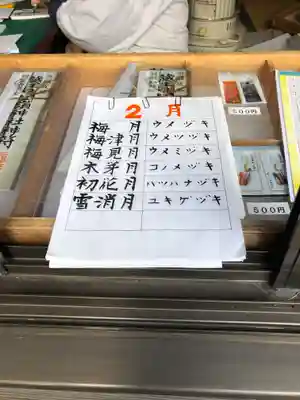 2 月
梅 月 ウメヅキ
梅津月 ウメツヅキ
梅見月 ウメミヅキ
木芽月 コノメヅキ
初花月 ハツハナヅキ
雪消月 ユキゲヅキ
500円
500円